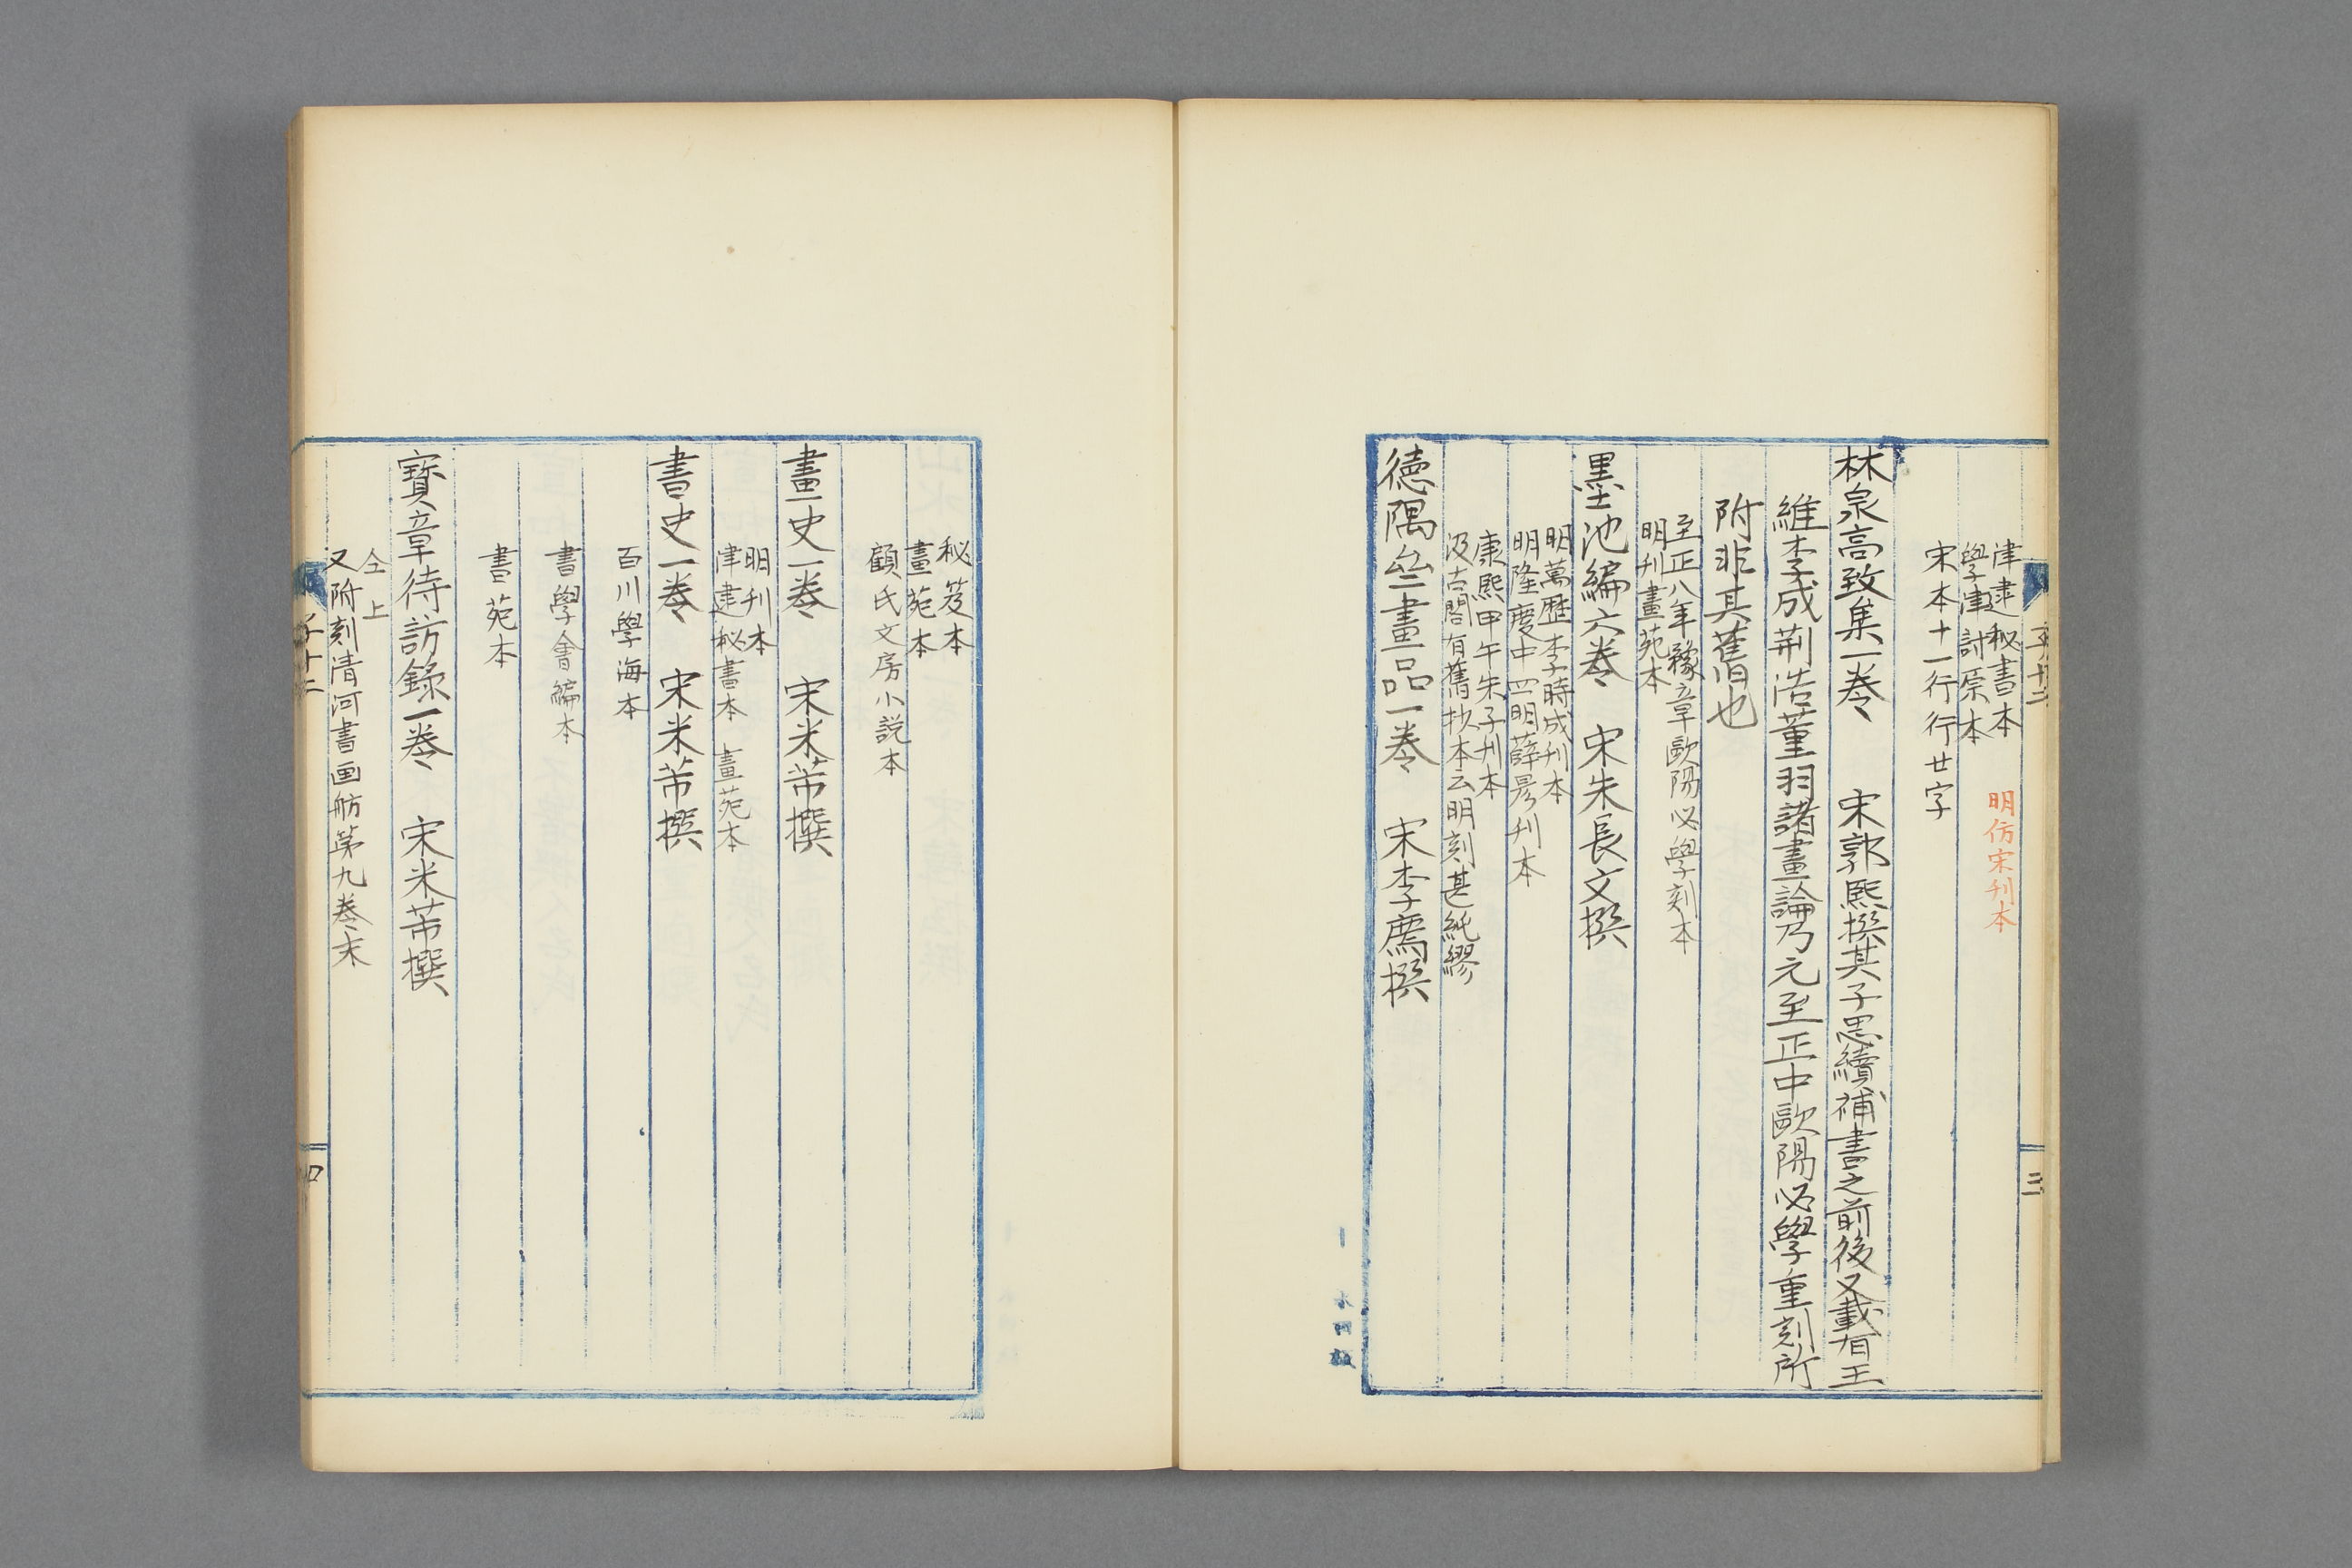 子十二
三
津逮秘書本
明仿宋刊本
學津討原本
宋本十一行行廿字
林泉高致集一卷　宋郭熙撰其子思續補書之前後又載有王
維李成荆浩董羽諸畫論乃元至正中歐陽必學重刻所
附非其舊也
至正八年豫章歐陽必學刻本
明刊畫苑本
墨池編六卷　宋朱長文撰
明萬歷李時成刊本
明隆慶中四明薛晨刊本
康熙甲午朱子刊本
汲古閣有舊抄本云明刻甚紕繆
德隅堂畫品一卷　宋李廌撰
秘笈本
畫苑本
顧氏文房小説本
畫史一卷　宋米芾撰
明刊本
津逮秘書本　畫苑本
書史一卷　宋米芾撰
百川學海本
書學會編本
書苑本
寳章待訪錄一卷　宋米芾撰
仝上
又附刻清河書画舫第九卷末
子十二
四